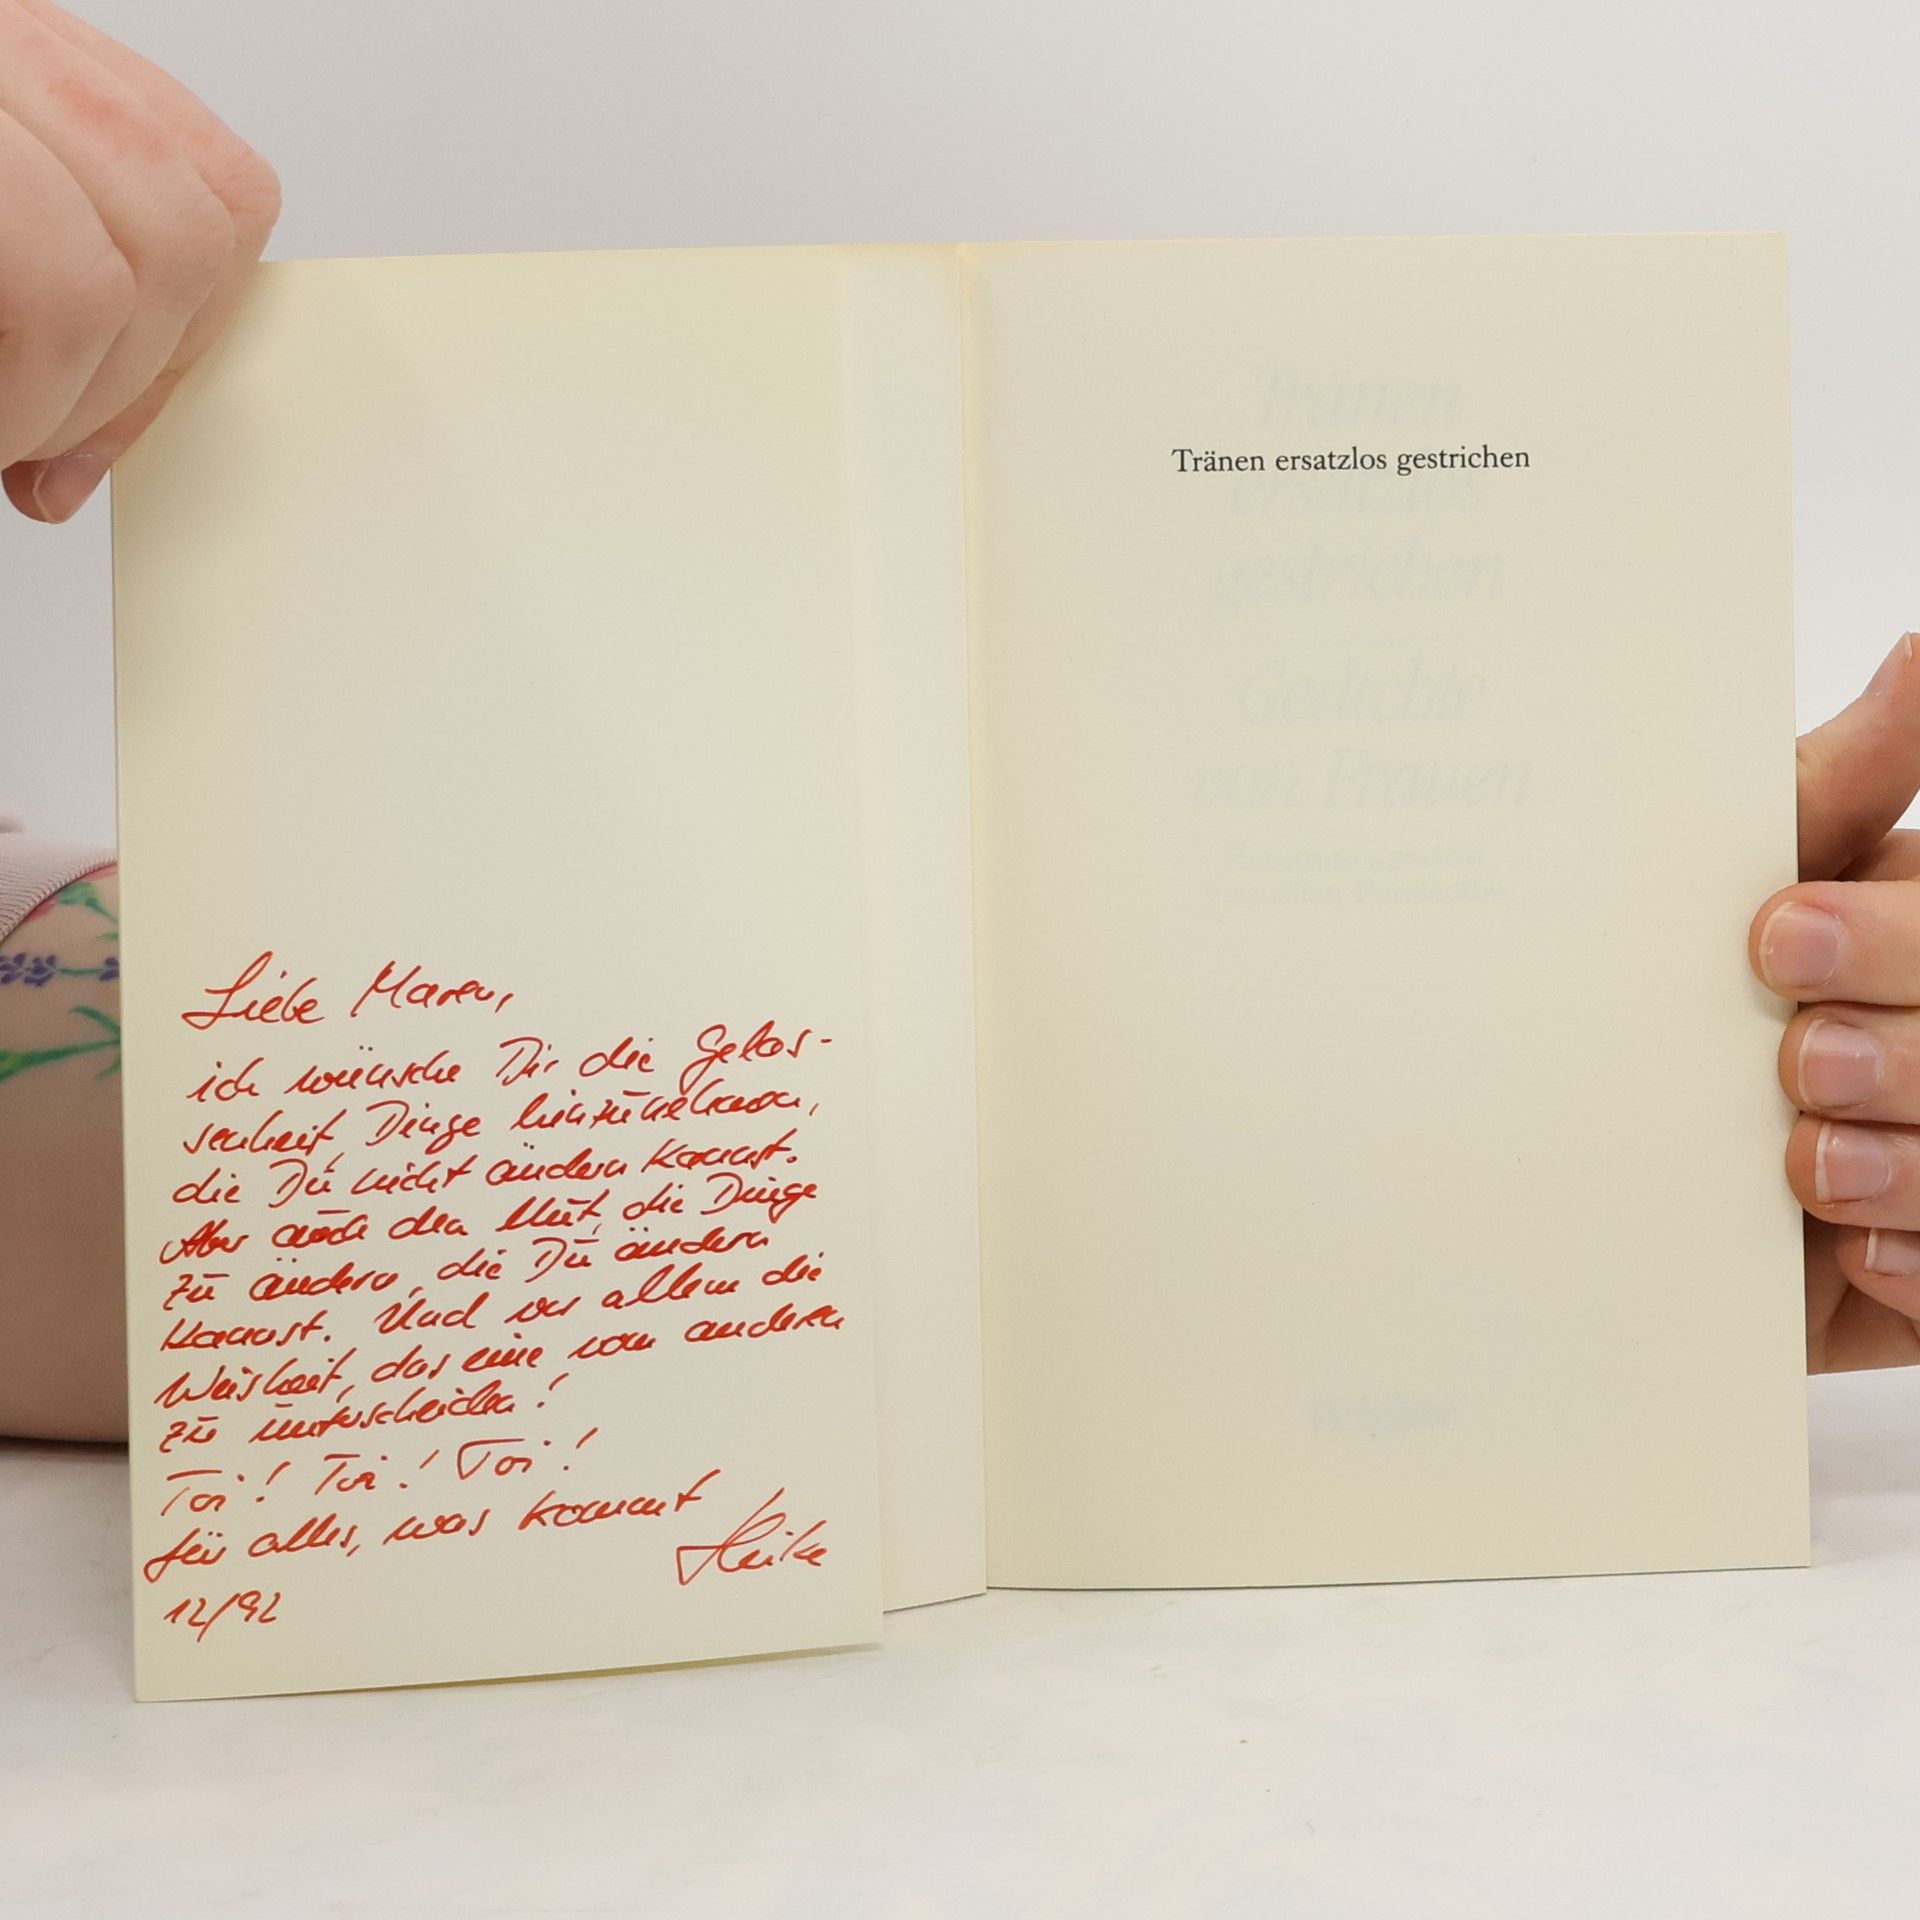 Liebe Maren,
ich wünsche Dir die Gelas-
senheit, Dinge hinzunehmen,
die Du nicht ändern kannst.
Aber auch den Mut, die Dinge
zu ändern, die Du ändern
kannst. Und vor allem die
Weisheit, das eine vom anderen
zu unterscheiden!
Toi! Toi! Toi!
für alles, was kommt
Heike
12/92
Tränen ersatzlos gestrichen
Tränen
ersatzlos
gestrichen
Gedichte
von Frauen